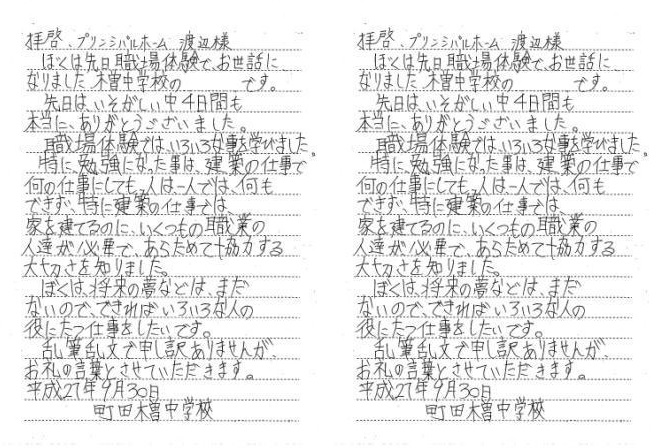 拝啓、プリンシパルホーム 渡辺様
ぼくは先日職場体験で、お世話に
なりました、木曽中学校の です。
先日は、いそがしい中4日間も
本当に、ありがとうございました。
職場体験では、いろいろな事を学びました。
特に、勉強になった事は、建築の仕事で
何の仕事にしても、人は一人では、何も
できず、特に建築の仕事では、
家を建てるのに、いくつもの職業の
人達が必要で、あらためて協力する
大切さを知りました。
ぼくは、将来の夢などは、まだ
ないので、できればいろいろな人の
役にたつ仕事をしたいです。
乱筆乱文で申し訳ありませんが、
お礼の言葉とさせていただきます。
平成27年9月30日
町田木曽中学校
拝啓、プリンシパルホーム 渡辺様
ぼくは先日職場体験で、お世話に
なりました、木曽中学校の です。
先日は、いそがしい中4日間も
本当に、ありがとうございました。
職場体験では、いろいろな事を学びました。
特に、勉強になった事は、建築の仕事で
何の仕事にしても、人は一人では、何も
できず、特に建築の仕事では、
家を建てるのに、いくつもの職業の
人達が必要で、あらためて協力する
大切さを知りました。
ぼくは、将来の夢などは、まだ
ないので、できればいろいろな人の
役にたつ仕事をしたいです。
乱筆乱文で申し訳ありませんが、
お礼の言葉とさせていただきます。
平成27年9月30日
町田木曽中学校